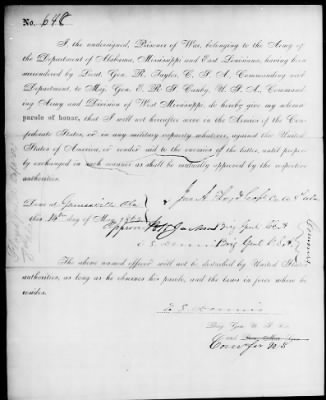 No. 648
I, the undersigned, Prisoner of War, belonging to the Army of
the Department of Alabama, Mississippi and East Louisiana, having been
surrendered by Lieut. Gen. R. Taylor, C. S. A., Commanding said
Department, to Maj. Gen. E. R. S. Canby, U. S. A., Commanding
Army and Division of West Mississippi, do hereby give my solemn
parole of honor, that I will not hereafter serve in the Armies of the Con-
federate States, or in any military capacity whatever, against the United
States of America, or render aid to the enemies of the latter, until properly
exchanged in such manner as shall be mutually approved by the respective
authorities.
Done at Gainesville Ala
this 14th day of May 1865
Approved W H Jackson Brig Genl CSA
E S Dennis Brig Genl USA
The above named officer will not be disturbed by United States
authorities, as long as he observes his parole, and the laws in force where he
resides.
E S Dennis
Brig Gen U. S. Vol
and
Com'r for U S